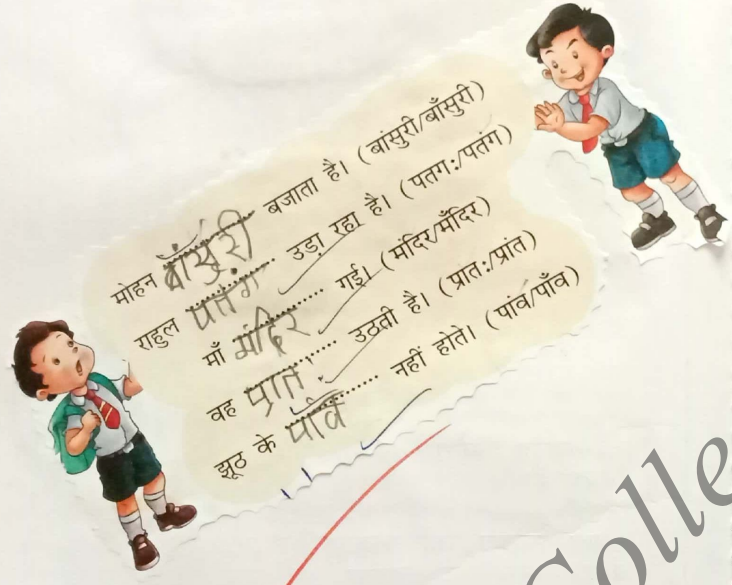 मोहन बाँसुरी बजाता है। (बांसुरी/बाँसुरी)
राहुल पतंग उड़ा रहा है। (पतग:/पतंग)
माँ मंदिर गई। (मंदिर/मँदिर)
वह प्रात: उठती है। (प्रात:/प्रांत)
झूठ के पाँव नहीं होते। (पांव/पाँव)
Colle